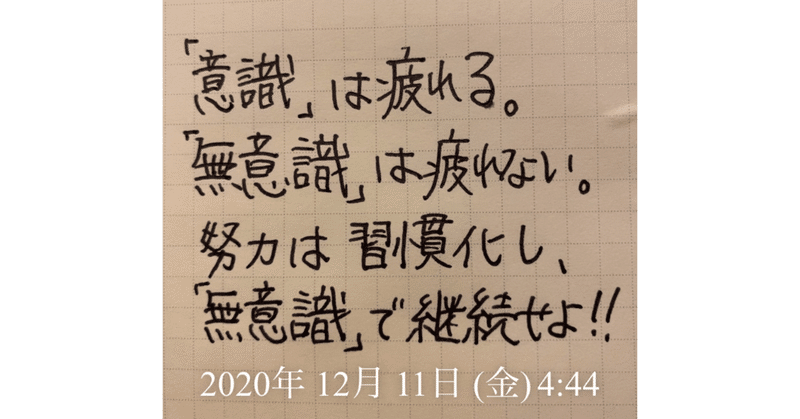 「意識」は疲れる。
「無意識」は疲れない。
努力は習慣化し、
「無意識」で継続せよ!!
2020年 12月 11日 (金) 4:44